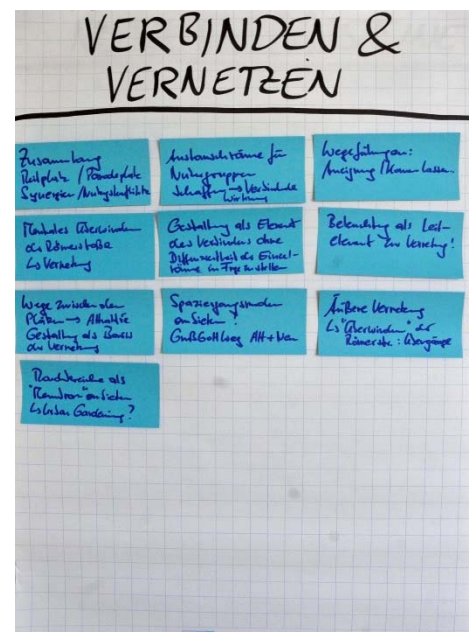 VERBINDEN &
VERNETZEN
Zusammenhang
Reitplatz / Paradeplatz
Synergien / Nutzungskonflikte
Austauschräume für
Nutzergruppen
schaffen → Verbindende
Wirkung
Wegeführungen:
Aneignung / Raum lassen
Mentales Überwinden
der Römerstraße
↳ Vernetzung
Gestaltung als Element
des Verbindens ohne
Differenziertheit der Einzel-
räume in Frage zu stellen
Beleuchtung als Leit-
element zur Vernetzung!
Wege zwischen den
Plätzen → Attraktive
Gestaltung als Basis
der Vernetzung
Spaziergangsrouten
andienen!
Grüß Gott Weg Alt + Neu
Äußere Vernetzung
↳ "Überwinden" der
Römerstr.: Übergänge
Randbereiche als
andienen
↳ Urban Gardening?